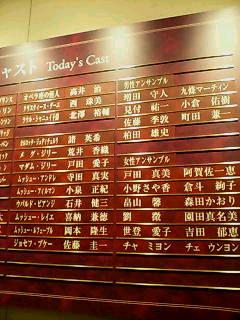 キャスト Today's Cast
オペラ座の怪人 高井 治
クリスティーヌ・ダーエ 西 珠美
ラウル・シャニュイ子爵 北澤 裕輔
カルロッタ・ジュディチェルリ 諸 英希
メグ・ジリー 荒井 香織
マダム・ジリー 戸田 愛子
ムッシュー・アンドレ 寺田 真実
ムッシュー・フィルマン 小泉 正紀
ウバルド・ピアンジ 石井 健三
ムッシュー・レイエ 喜納 兼徳
ムッシュー・ルフェーブル 岡本 隆生
ジョセフ・ブケー 佐藤 圭一
男性アンサンブル
増田 守人 九條 マーティン
見付 祐一 小倉 佑樹
佐藤 季敦 町田 兼一
柏田 雄史
女性アンサンブル
戸田 真美 阿賀佐一恵
小野さや香 倉斗 絢子
畠山 馨 森田かおり
劉 微 園田真名美
世登 愛子 吉田 郁恵
チャ ミヨン チェ ウンヨン